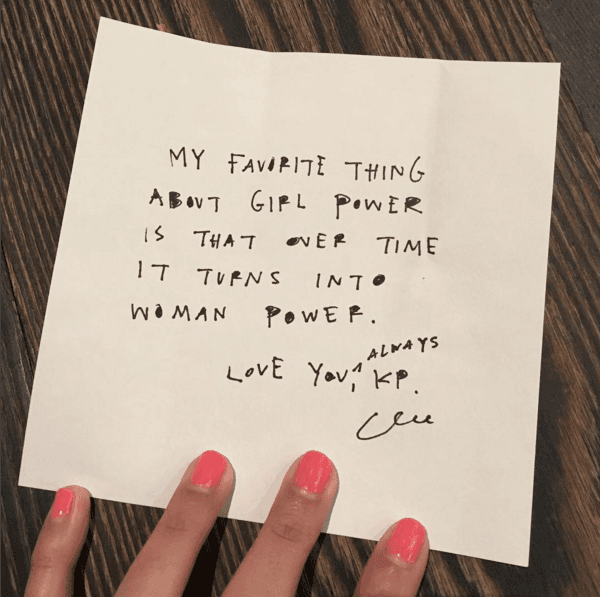 MY FAVORITE THING
ABOUT GIRL POWER
IS THAT OVER TIME
IT TURNS INTO
WOMAN POWER.
ALWAYS
LOVE YOU,^ KP.